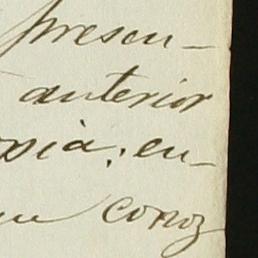 presen-
anterior
osia; en-
coroz